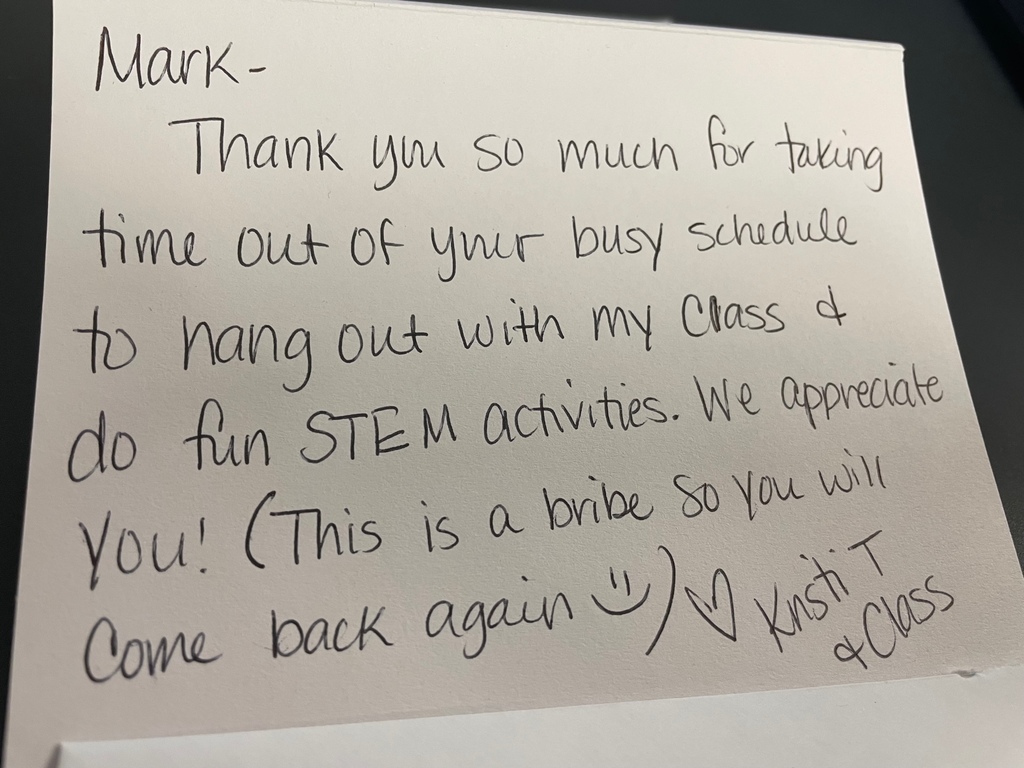 Mark-
Thank you so much for taking
time out of your busy schedule
to hang out with my Class &
do fun STEM activities. We appreciate
you! (This is a bribe so you will
Come back again :)) ♡ Kristi T
& Class